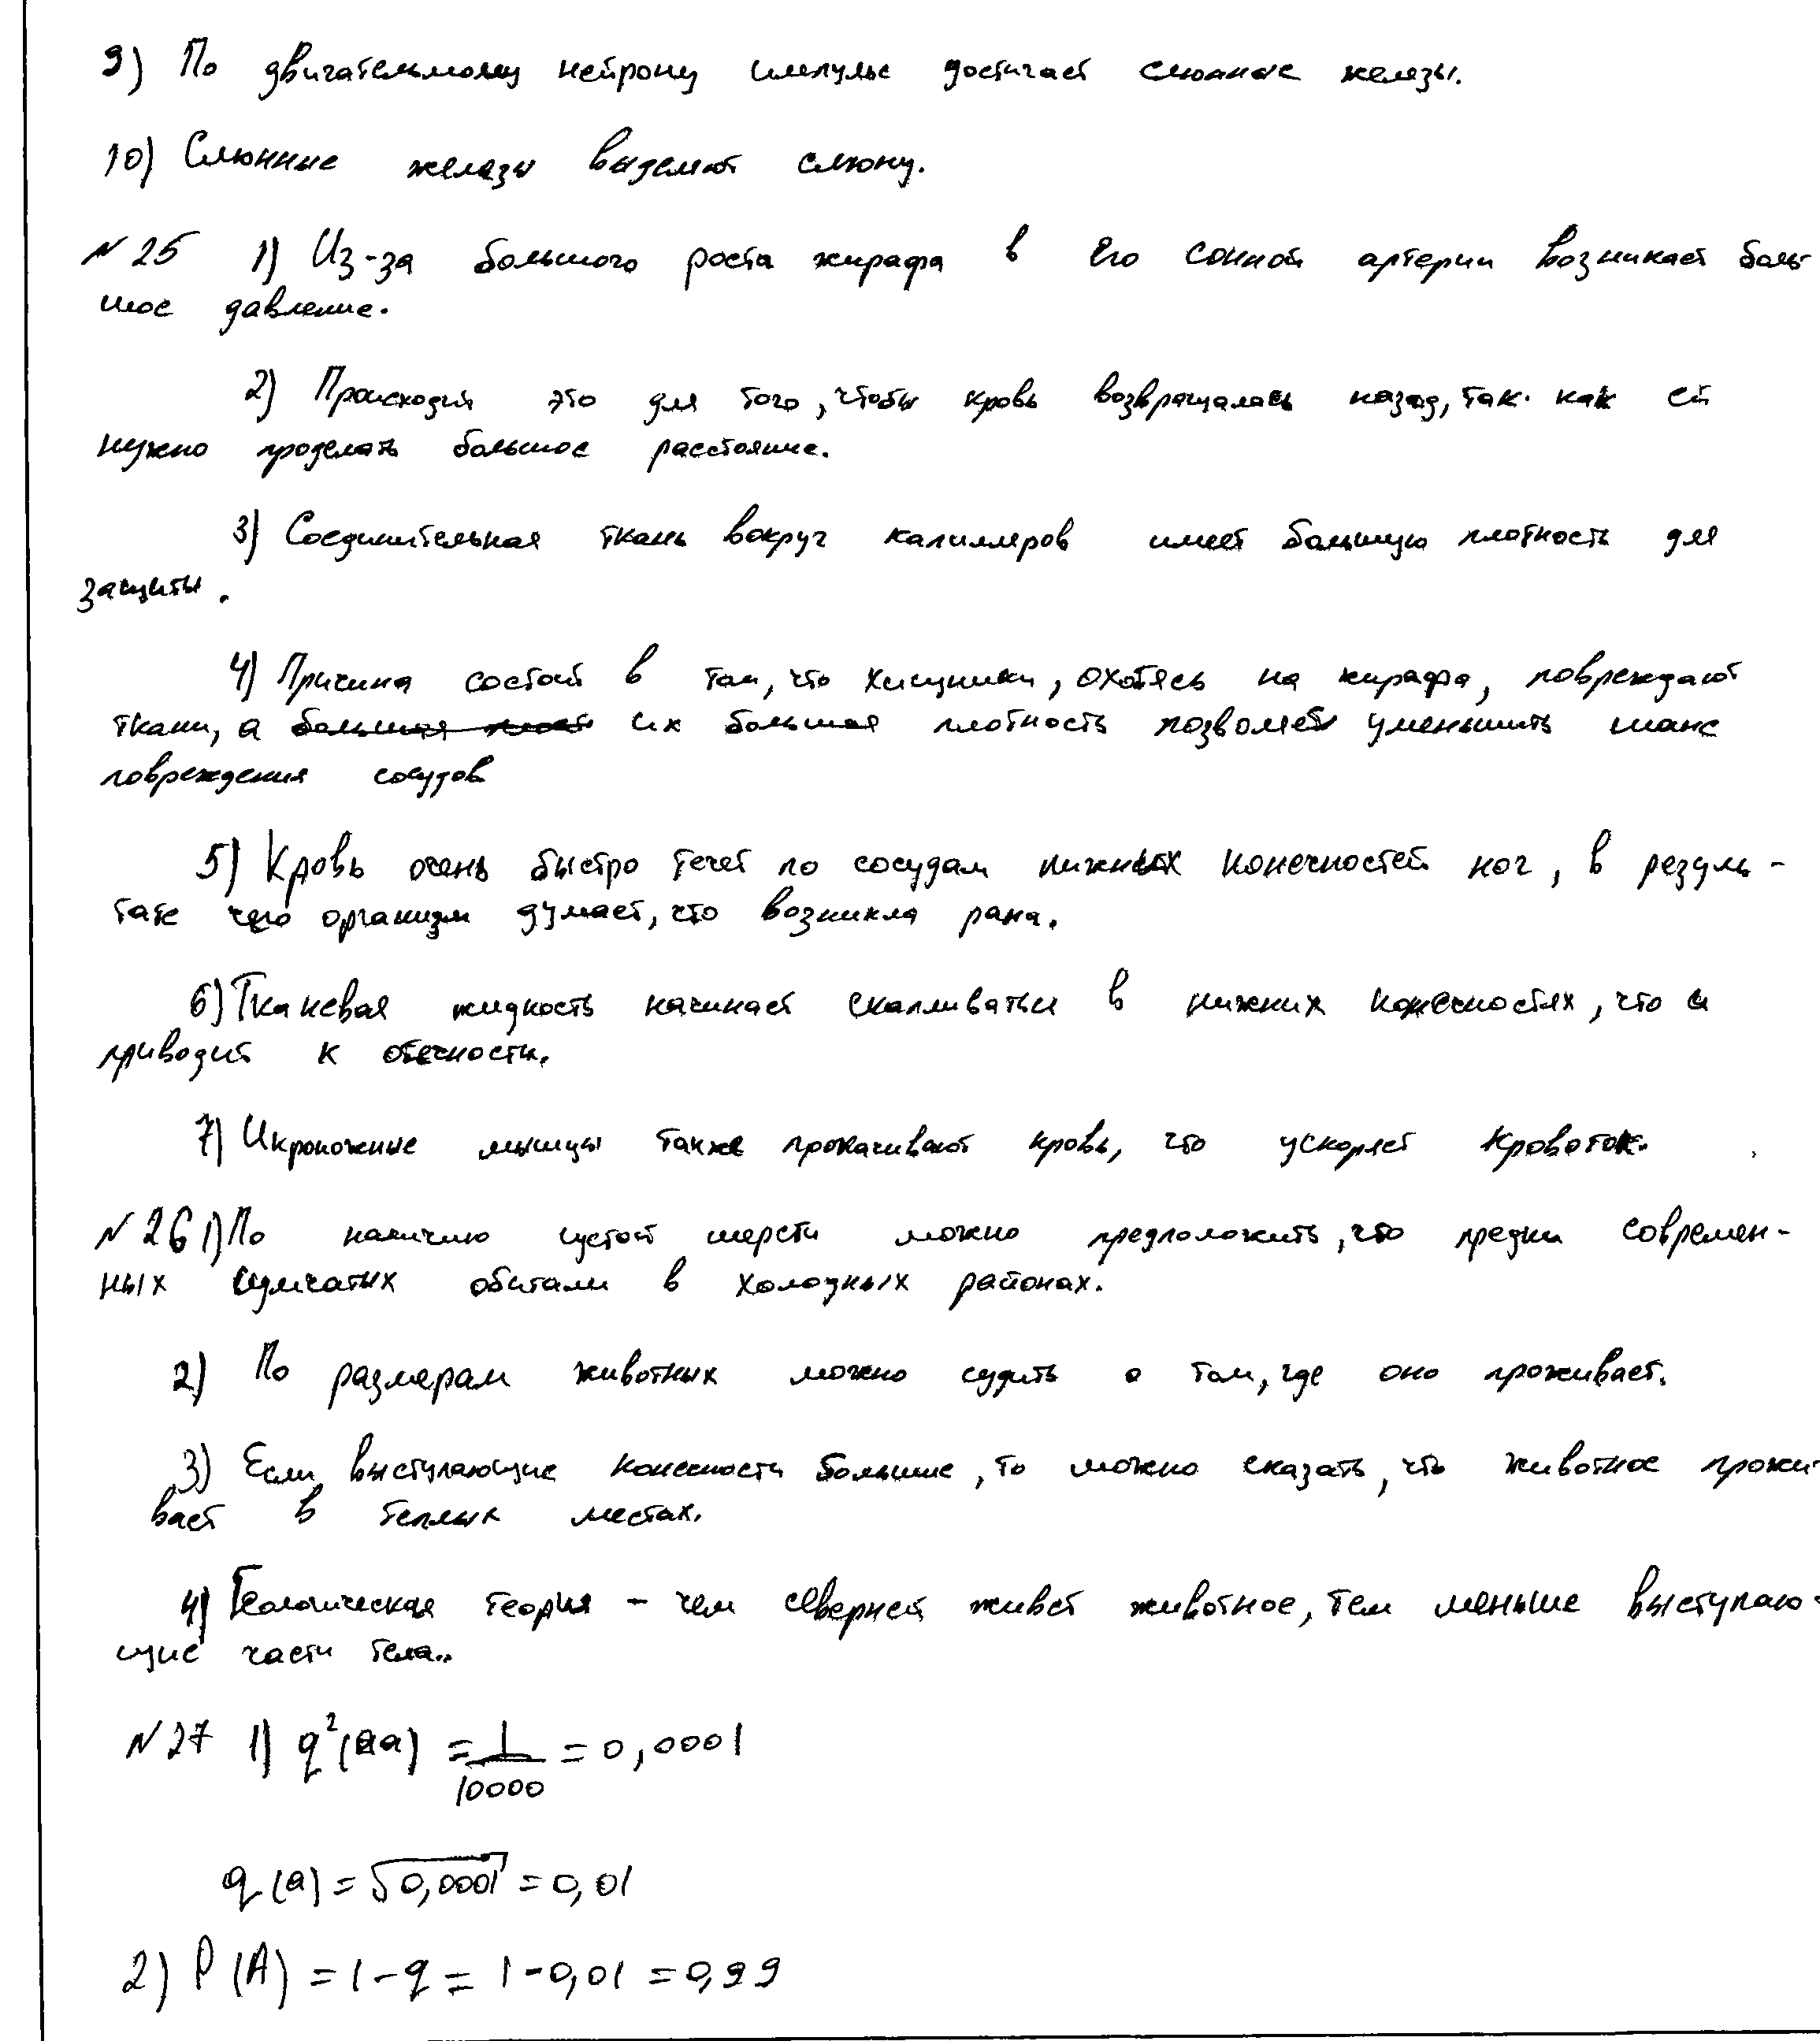 9) По двигательному нейрону импульс достигает слюнные железы.
10) Слюнные железы выделяют слюну.
№25 1) Из-за большого роста жирафа в его сонной артерии возникает боль-
шое давление.
2) Происходит это для того, чтобы кровь возвращалась назад, так как ей
нужно проделать большое расстояние.
3) Соединительная ткань вокруг капилляров имеет большую плотность для
защиты.
4) Причина состоит в том, что хищники, охотясь на жирафа, повреждают
ткани, а их большая плотность позволяет уменьшить шанс
повреждения сосудов
5) Кровь очень быстро течет по сосудам нижних конечностей ног, в резуль-
тате чего организм думает, что возникла рана.
6) Тканевая жидкость начинает скапливаться в нижних конечностях, что и
приводит к отечности.
7) Икроножные мышцы также прокачивают кровь, что ускоряет кровоток.
№26 1) По наличию густой шерсти можно предположить, что предки современ-
ных сумчатых обитали в холодных районах.
2) По размерам животных можно судить о том, где оно проживает.
3) Если выступающие конечности большие, то можно сказать, что животное прожи-
вает в теплых местах.
4) Геологическая теория - чем северней живет животное, тем меньше выступаю-
щие части тела..
№27 1) q²(aa) = 1/10000 = 0,0001
q(a) = √0,0001 = 0,01
2) P(A) = 1-q = 1-0,01 = 0,99